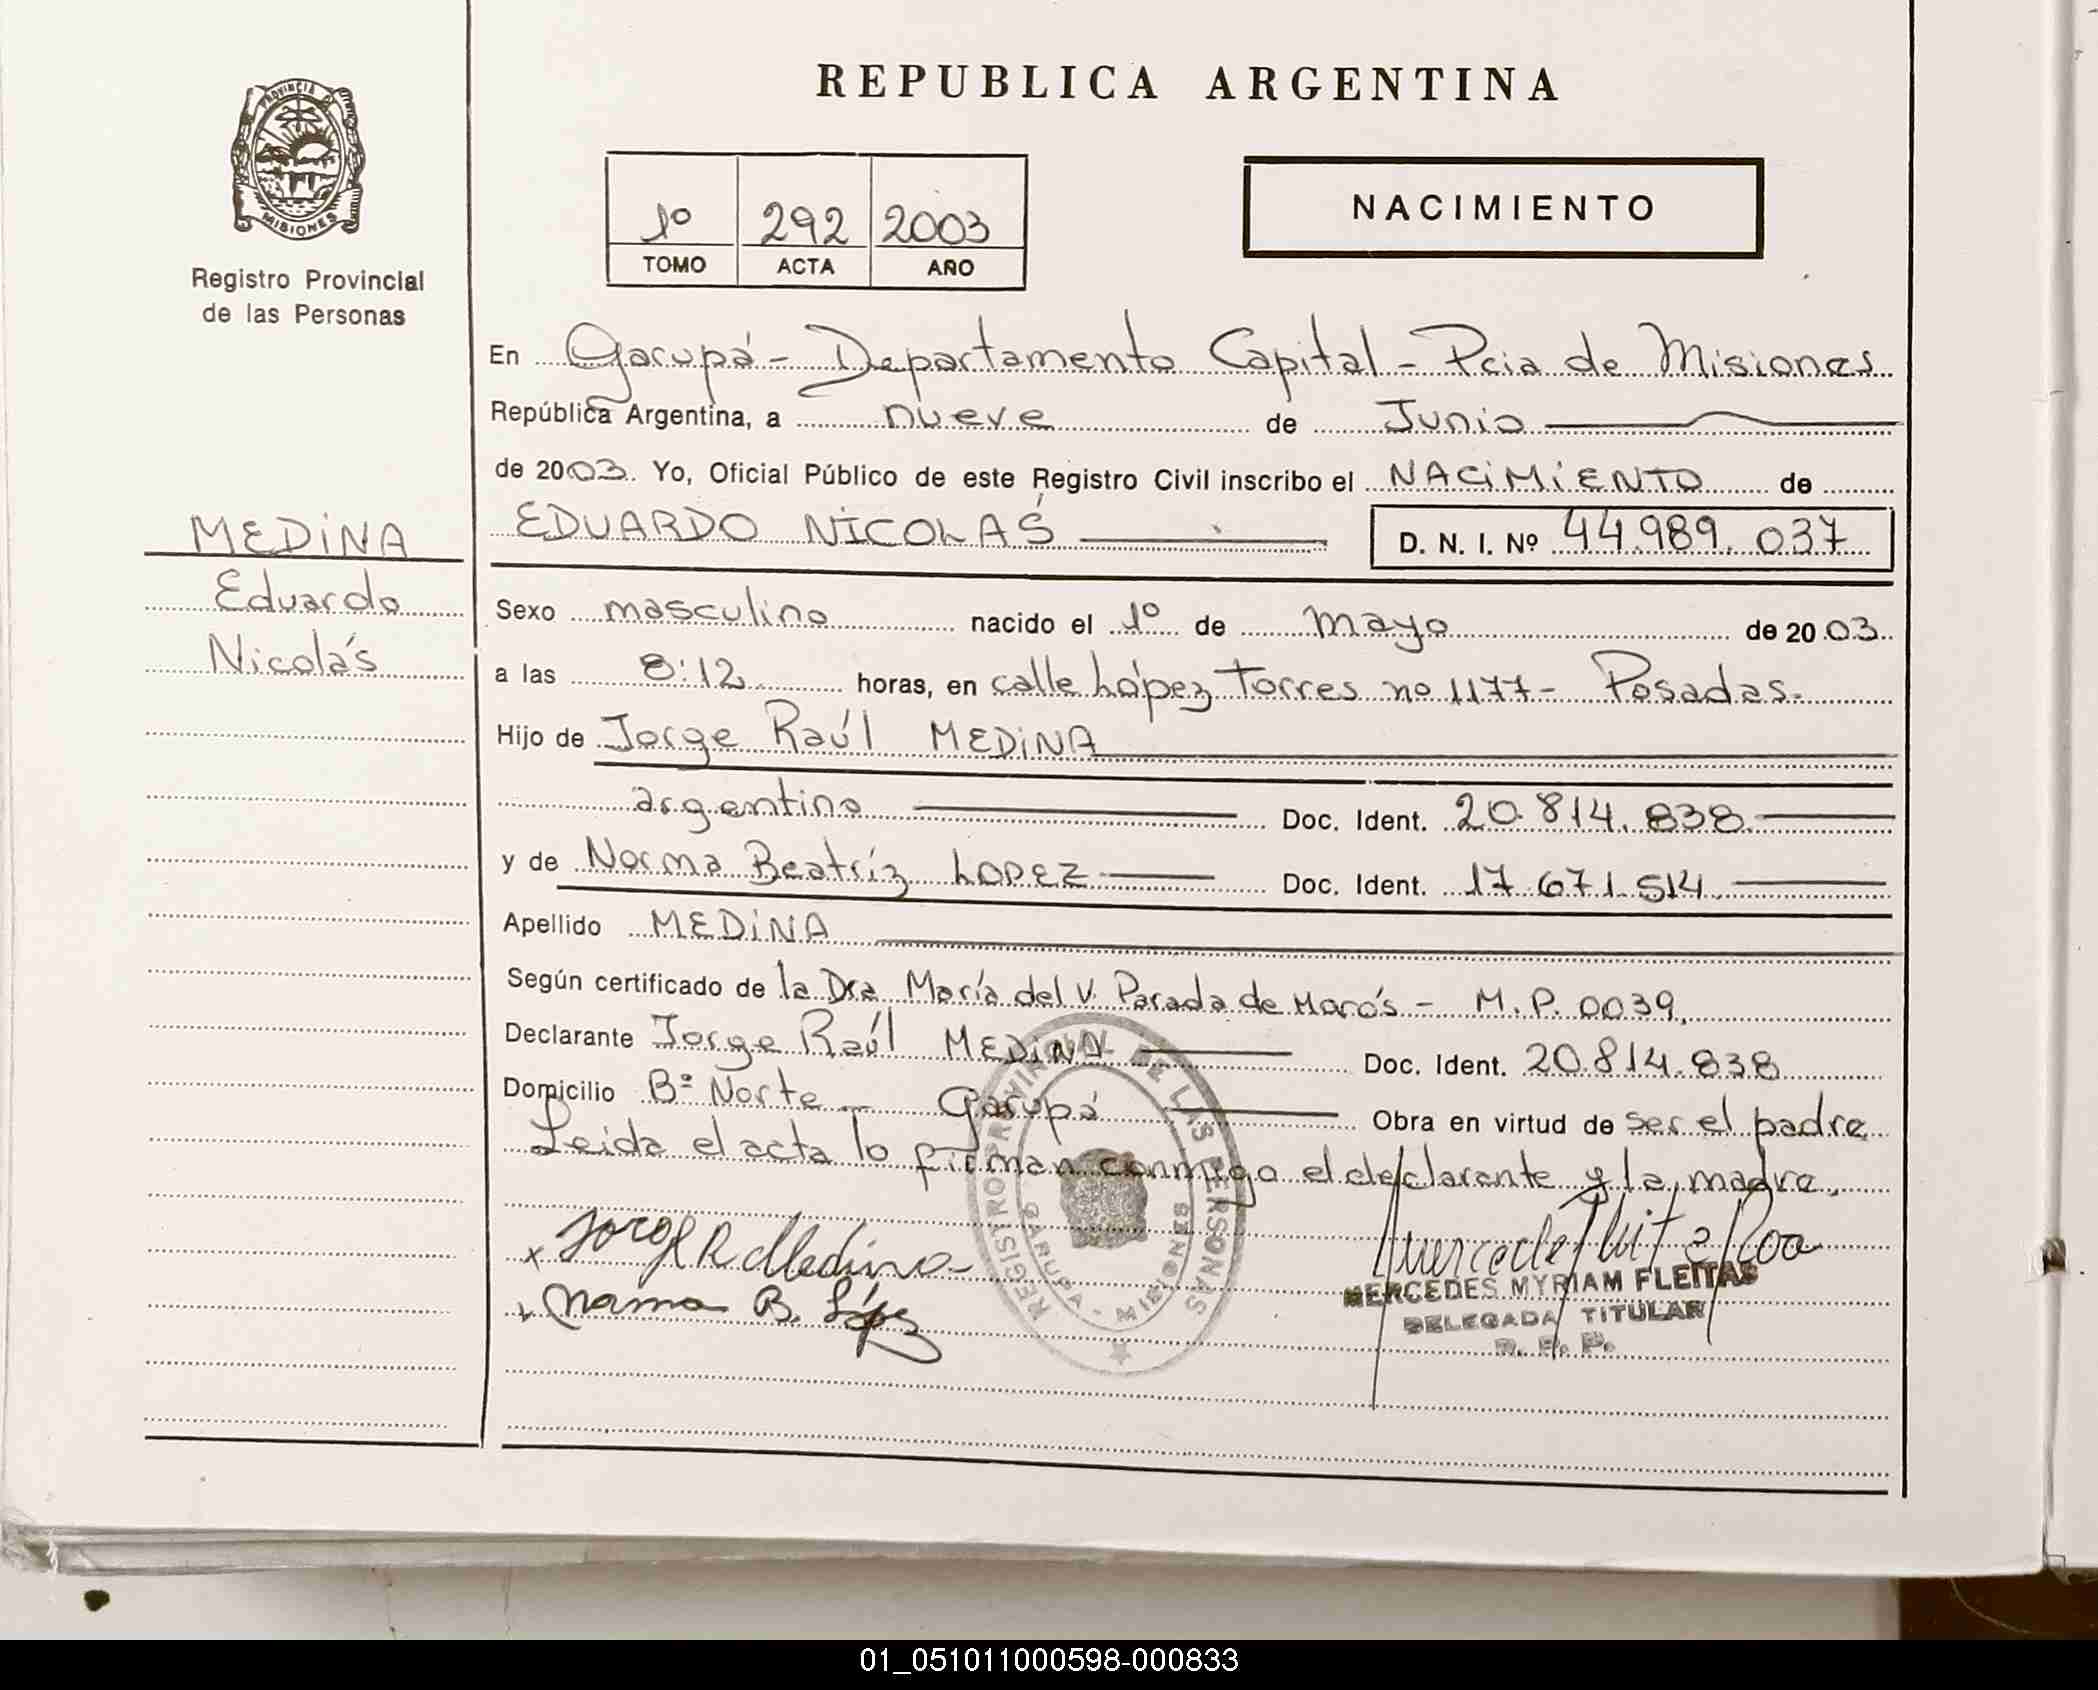 REPUBLICA ARGENTINA
PROVINCIA
MISIONES
Registro Provincial
de las Personas
1º 292 2003
TOMO ACTA AÑO
NACIMIENTO
En Garupá - Departamento Capital - Pcia de Misiones
República Argentina, a nueve de Junio
de 2003. Yo, Oficial Público de este Registro Civil inscribo el NACIMIENTO de
EDUARDO NICOLÁS D. N. I. Nº 44.989.037
MEDINA
Eduardo
Nicolás
Sexo masculino nacido el 1º de mayo de 2003
a las 8:12 horas, en calle López Torres nº 1177 - Posadas.
Hijo de Jorge Raúl MEDINA
argentino Doc. Ident. 20.814.838
y de Norma Beatríz LOPEZ Doc. Ident. 17.671.514
Apellido MEDINA
Según certificado de la Dra María del V. Parada de Marós - M.P. 0039.
Declarante Jorge Raúl MEDINA Doc. Ident. 20.814.838
Domicilio Bº Norte - Garupá Obra en virtud de ser el padre
Leida el acta lo firman conmigo el declarante y la madre.
REGISTRO PROVINCIAL DE LAS PERSONAS
GARUPA - MISIONES
x Jorge R Medina
x Norma B. López
MERCEDES MYRIAM FLEITAS
DELEGADA TITULAR
R. P. P.
01_051011000598-000833